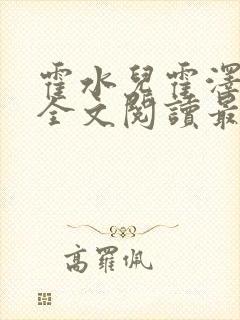 霍水兒霍澤
全文閱讀最
高羅佩